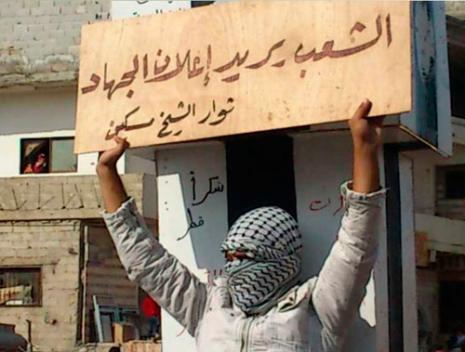 الشعب يريد إعلان الجهاد
ثوار الشيخ مسكين
شكراً
قطر